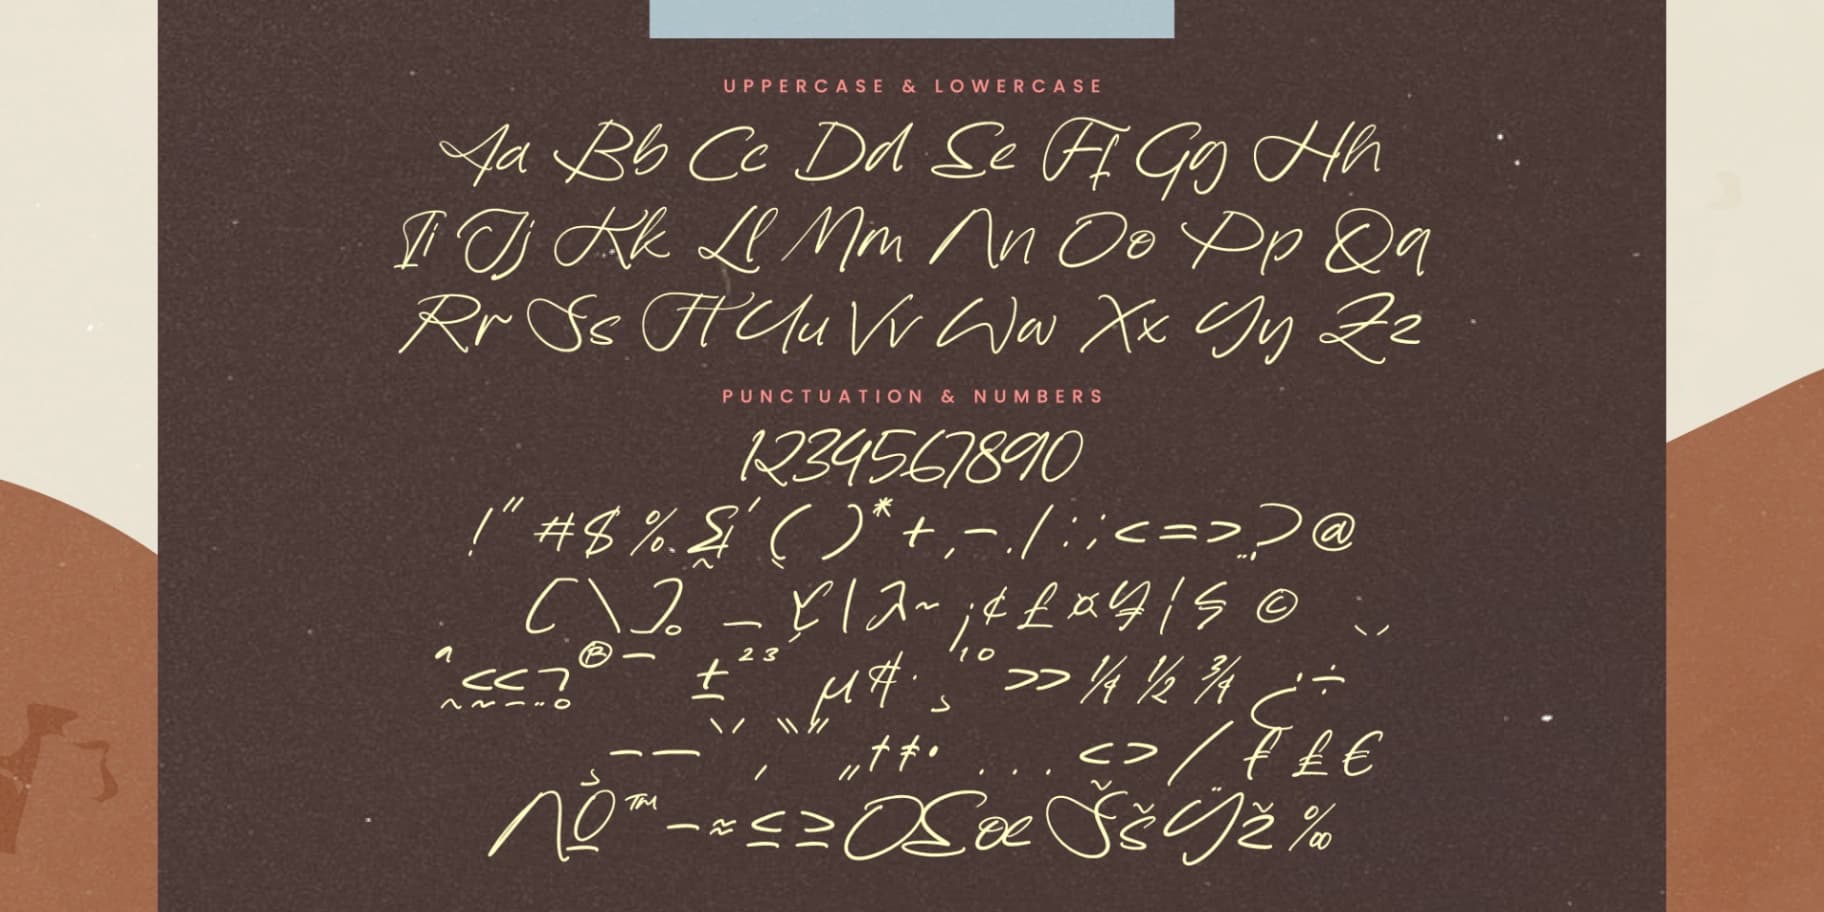 UPPERCASE & LOWERCASE
Aa Bb Cc Dd Ee Ff Gg Hh
Ii Jj Kk Ll Mm Nn Oo Pp Qq
Rr Ss Tt Uu Vv Ww Xx Yy Zz
PUNCTUATION & NUMBERS
1234567890
! " # $ % & ' ( ) * + , - . / : ; < = > ? @
[ \ ] _ { | } ~ ¡ ¢ £ ¤ ¥ ¦ § ©
ª « ¬ ® ¯ ± ² ³ µ ¶ · ¸ ¹ º » ¼ ½ ¾ ¿ ÷
– — ‘ ’ ‚ “ ” „ † ‡ • … ‹ › ⁄ € 
Ω ™ − ≈ ≤ ≥ Œ œ Š š Ÿ ž ‰